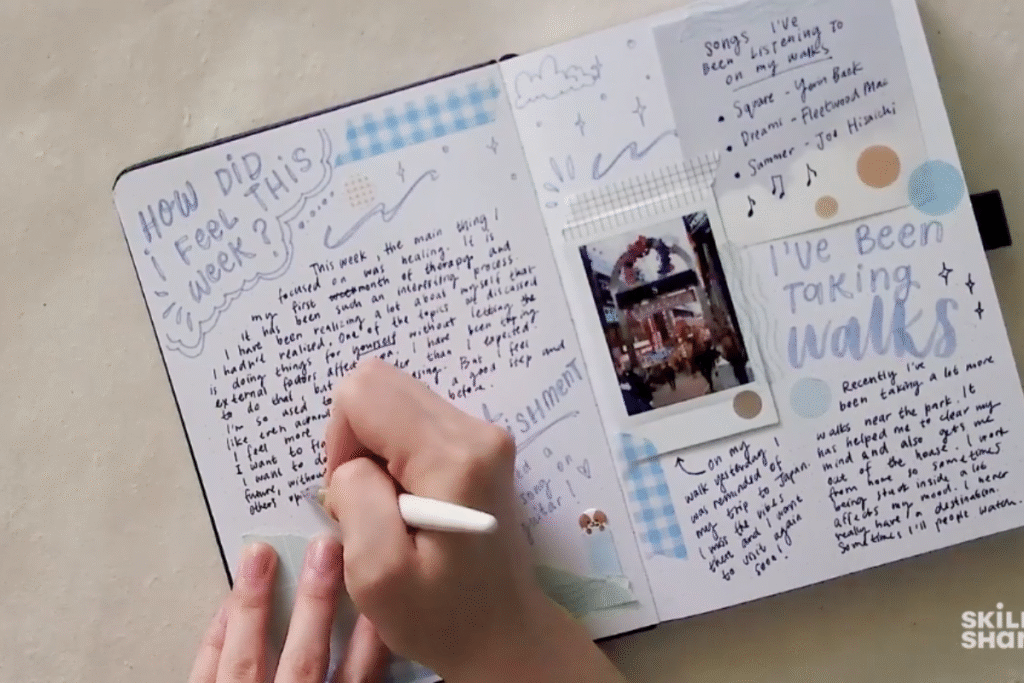 HOW DID
I FEEL THIS
WEEK?
This week, the main thing I
focused on was healing. It is
my first month of therapy and
it has been such an interesting process.
I have been realizing a lot about myself that
I hadn't realised. One of the topics we discussed
is doing things for yourself without letting the
external factors affect
to do that, but than I expected.
I'm so used to But I feel
like even a good step and
I feel more before.
I want to
want to do
future, without
others
ISHMENT
a
song on
guitar!
SONGS I'VE
BEEN LISTENING TO
ON MY WALKS
• Square - Yerin Baek
• Dreams - Fleetwood Mac
• Summer - Joe Hisaishi
I'VE BEEN
TAKING
walks
on my
walk yesterday I
was reminded of
my trip to Japan.
I miss the vibes
there and I want
to visit again
soon!
Recently I've
been taking a lot more
walks near the park. It
has helped me to clear my
mind and also gets me
out of the house. I work
from home so sometimes
being stuck inside a lot
affects my mood. I never
really have a destination.
Sometimes I'll people watch.
SKILL
SHAR